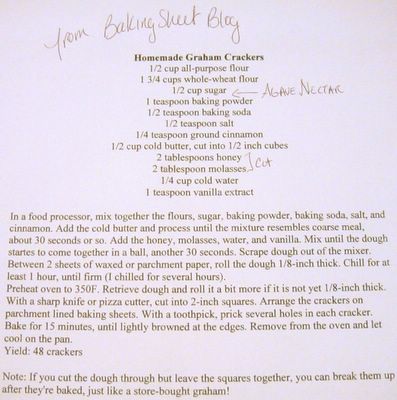 from BakingSheet Blog
Homemade Graham Crackers
1/2 cup all-purpose flour
1 3/4 cups whole-wheat flour
1/2 cup sugar ← AGAVE NECTAR
1 teaspoon baking powder
1/2 teaspoon baking soda
1/2 teaspoon salt
1/4 teaspoon ground cinnamon
1/2 cup cold butter, cut into 1/2 inch cubes
2 tablespoons honey
2 tablespoons molasses
1/4 cup cold water
1 teaspoon vanilla extract
In a food processor, mix together the flours, sugar, baking powder, baking soda, salt, and
cinnamon. Add the cold butter and process until the mixture resembles coarse meal,
about 30 seconds or so. Add the honey, molasses, water, and vanilla. Mix until the dough
starts to come together in a ball, another 30 seconds. Scrape dough out of the mixer.
Between 2 sheets of waxed or parchment paper, roll the dough 1/8-inch thick. Chill for at
least 1 hour, until firm (I chilled for several hours).
Preheat oven to 350F. Retrieve dough and roll it a bit more if it is not yet 1/8-inch thick.
With a sharp knife or pizza cutter, cut into 2-inch squares. Arrange the crackers on
parchment lined baking sheets. With a toothpick, prick several holes in each cracker.
Bake for 15 minutes, until lightly browned at the edges. Remove from the oven and let
cool on the pan.
Yield: 48 crackers
Note: If you cut the dough through but leave the squares together, you can break them up
after they're baked, just like a store-bought graham!